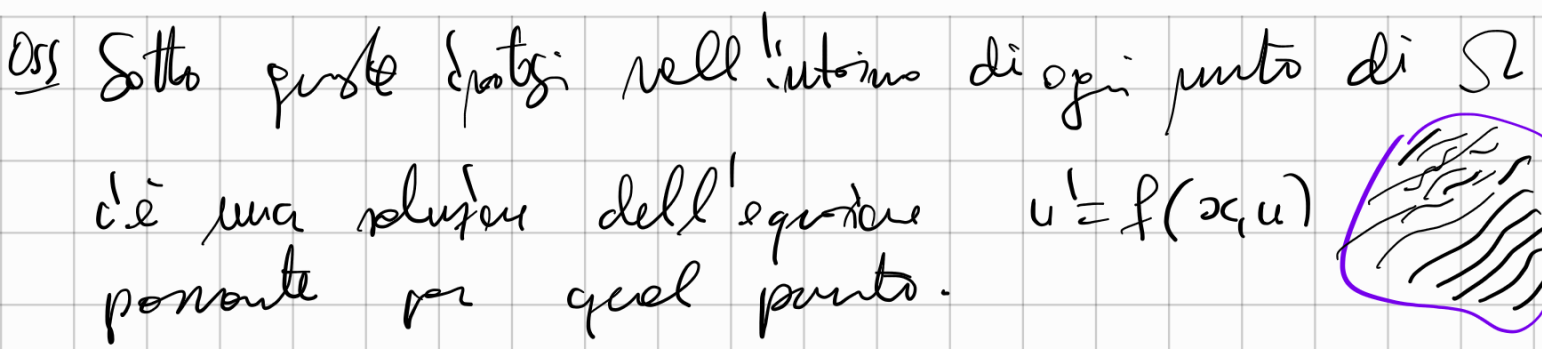 Oss Sotto queste ipotesi nell'intorno di ogni punto di Ω
c'è una soluzione dell'equazione u' = f(x,u)
passante per quel punto.